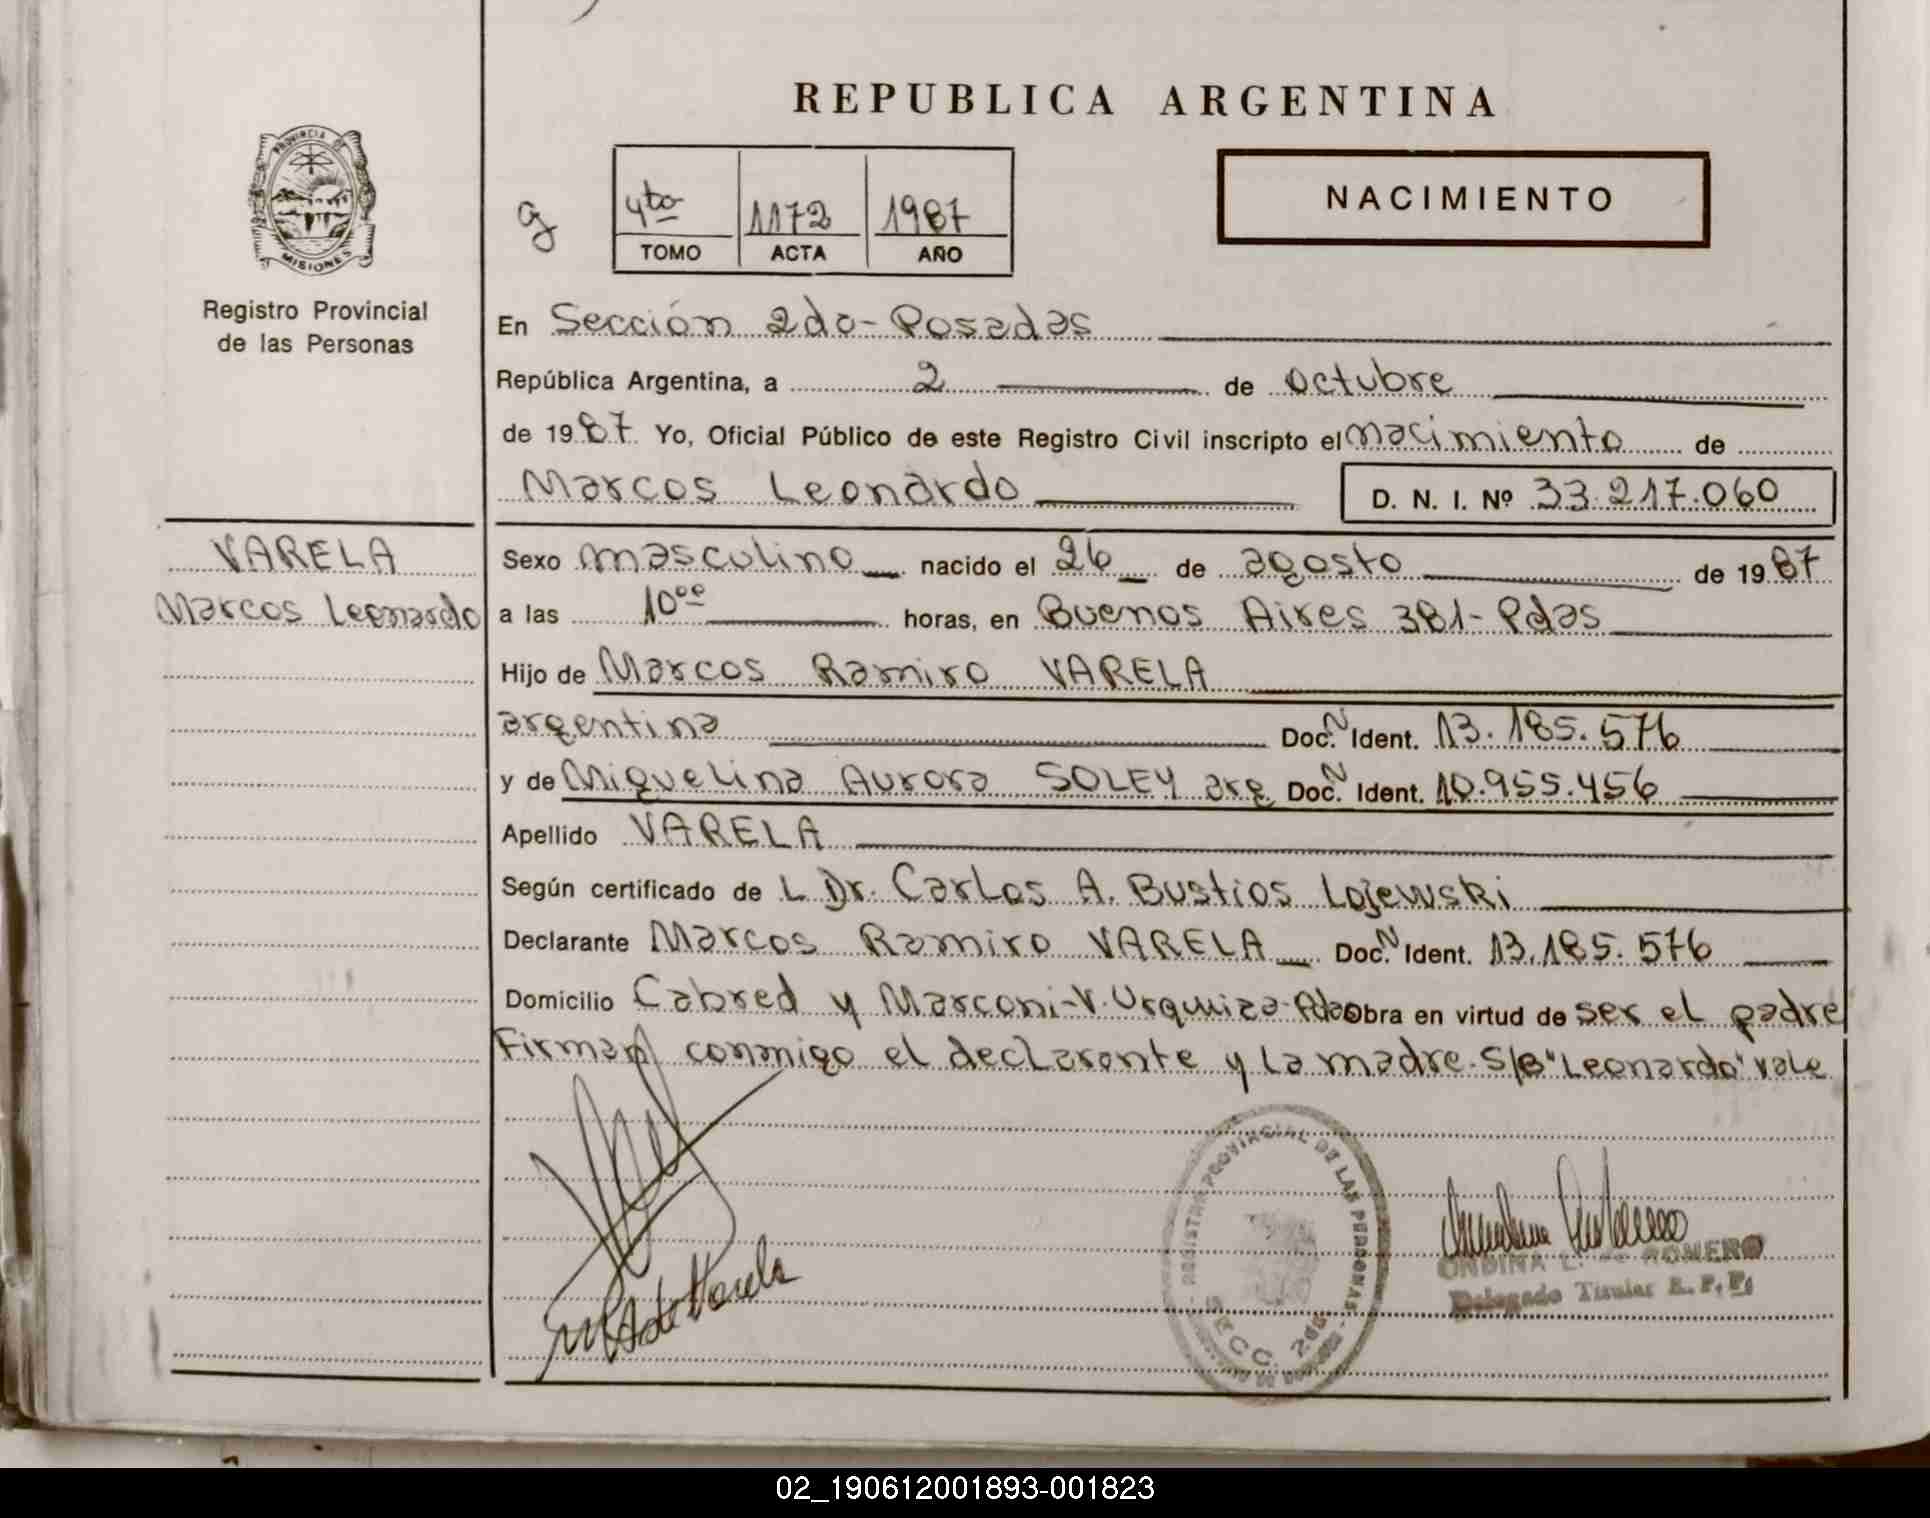 REPUBLICA ARGENTINA
PROVINCIA DE
MISIONES
Registro Provincial
de las Personas
g
4to 1172 1987
TOMO ACTA AÑO
NACIMIENTO
En Sección 2da - Posadas
República Argentina, a 2 de octubre
de 1987 Yo, Oficial Público de este Registro Civil inscripto el nacimiento de
Marcos Leonardo D. N. I. Nº 33.217.060
VARELA
Marcos Leonardo
Sexo masculino nacido el 26 de agosto de 1987
a las 10 oo horas, en Buenos Aires 381 - Pdas
Hijo de Marcos Ramiro VARELA
argentina Doc. N Ident. 13.185.576
y de Miguelina Aurora SOLEY arg Doc. N Ident. 10.955.456
Apellido VARELA
Según certificado de L Dr. Carlos A. Bustios Lojewski
Declarante Marcos Ramiro VARELA Doc. N Ident. 13.185.576
Domicilio Cabred y Marconi - V. Urquiza - Pdas Obra en virtud de ser el padre
Firman conmigo el declarante y la madre. S/B "Leonardo" vale
REGISTRO PROVINCIAL DE LAS PERSONAS
SECC. 2da
ONDINA L. de ROMERO
Delegado Titular R. P. P.
02_190612001893-001823